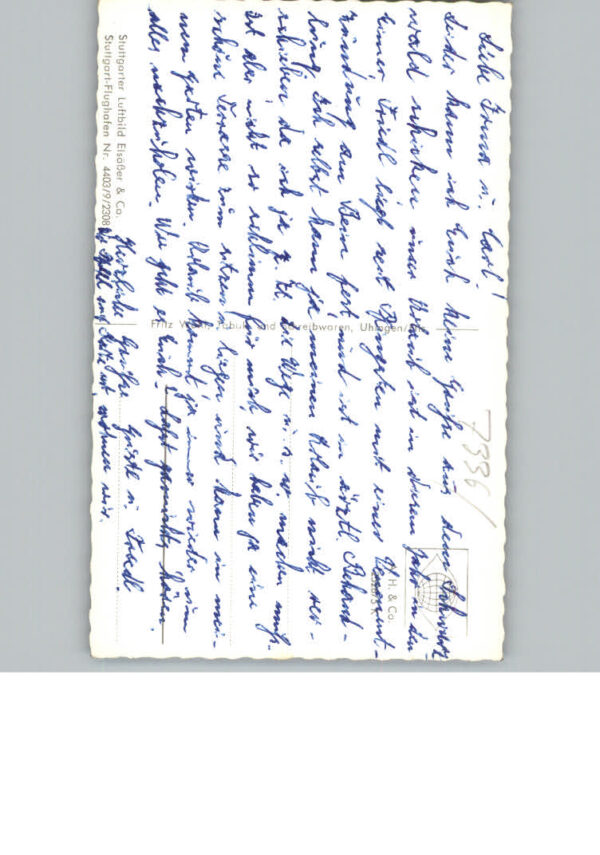 Liebe Irma u. Carl!
Leider kann ich Euch keine Grüße aus dem Schwarz-
wald schicken unser Urlaub ist in diesem Jahr in den
Eimer. Friedl liegt seit Pfingsten mit einer Venenent-
zündung am Bein fest und ist in ärztl. Behand-
lung. Ich selbst kann ja meinen Urlaub nicht ver-
schieben da ich ja z. Zt. die Wege u.s.w. machen muß.
Ist aber nicht so schlimm für mich, wir haben ja eine
schöne Terrasse zum sitzen u. liegen und kann in mei-
nem Garten wirken. Urlaub kommt ja immer wieder zum
alles nachzuholen. Wie geht es Euch?
Herzliche Grüße Gustl u. Friedl.
Stuttgarter Luftbild Elsäßer & Co.
Stuttgart-Flughafen Nr. 4403/9/2308
Fritz Tabak und Schreibwaren, Uhingen/
H. & Co.
73361